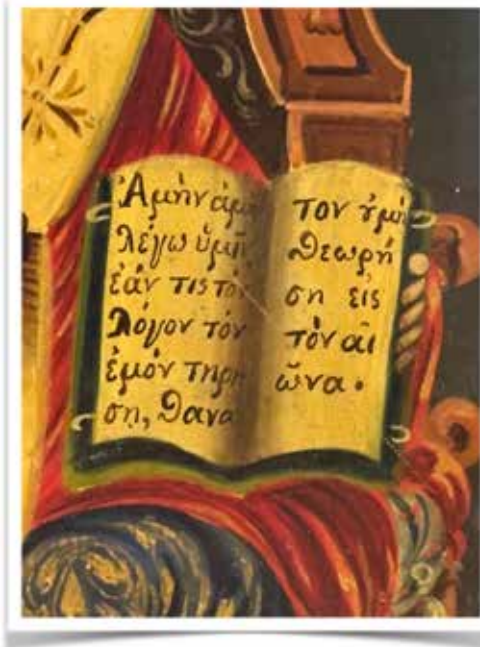 Ἀμὴν ἀμὴ
λέγω ὑμῖν
ἐάν τις τὸν
λόγον τὸν
ἐμὸν τηρή
ση, θανα
τον ȣ̓ μὴ
θεωρή
ση εἰς
τὸν αἰ
ῶνα.